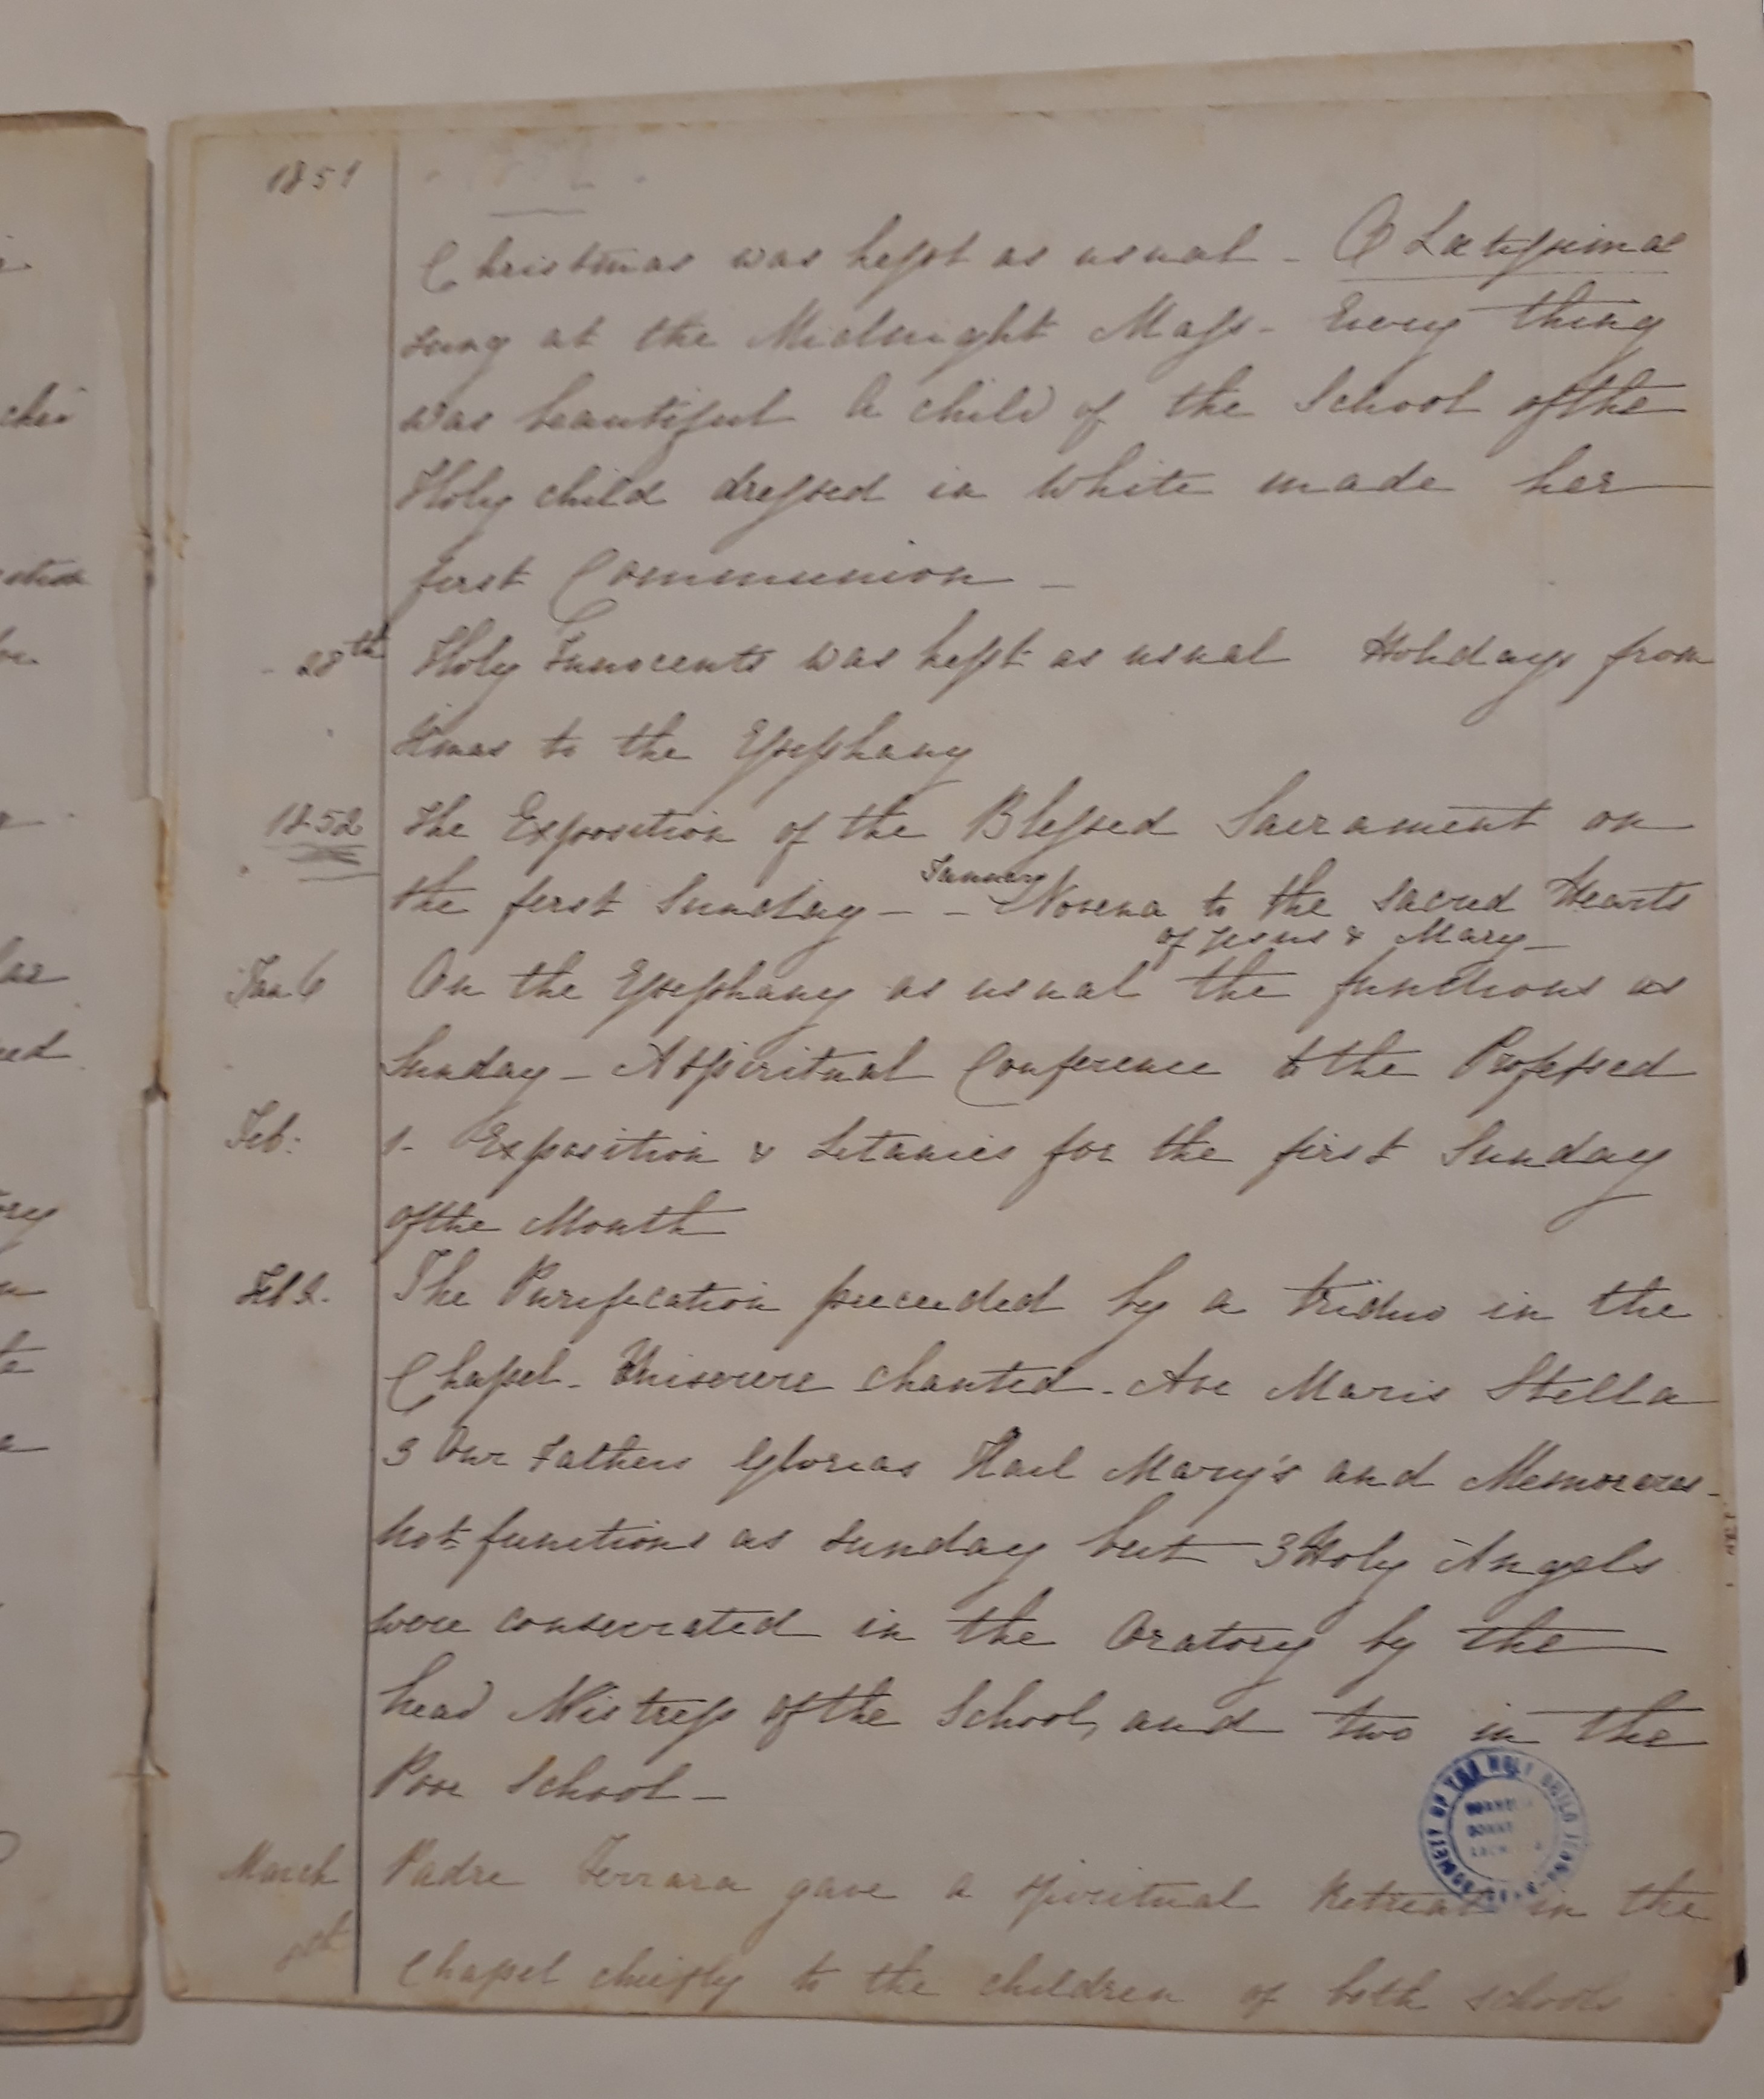 1851
Christmas was kept as usual - O Lætissima
sung at the Midnight Mass - Every thing
was beautiful A child of the School of the
Holy child dressed in white made her
first Communion -
28th Holy Innocents was kept as usual Holidays from
Xmas to the Epiphany
1852 The Exposition of the Blessed Sacrament on
the first Sunday - - January Novena to the Sacred Hearts
of Jesus & Mary -
Jan 6 On the Epiphany as usual the functions as
Sunday - A spiritual Conference to the Professed
Feb: 1. Exposition & Litanies for the first Sunday
of the Month
Feb 2. The Purification preceeded by a triduo in the
Chapel - Miserere chanted - Ave Maris Stella
3 Our Fathers Glorias Hail Mary's and Memorares -
Not functions as Sunday but 3 Holy Angels
were consecrated in the Oratory by the
head Mistress of the School, and two in the
Poor School -
March Padre Ferrara gave a spiritual Retreat in the
8th Chapel chiefly to the children of both schools
SOCIETY OF THE HOLY CHILD JESUS